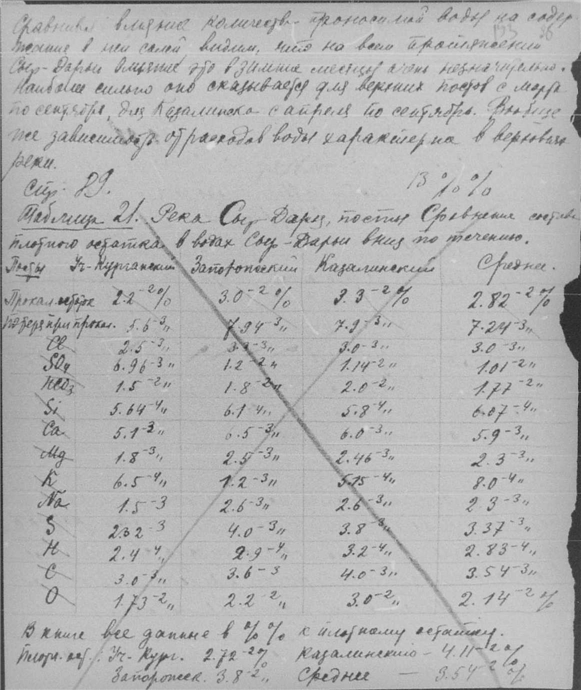 Сравнивая влияние количества проносимой воды на содер-
жание в ней солей видим, что на всем протяжении
Сыр-Дарьи влияние это в зимние месяцы очень незначительно.
Наиболее сильно оно сказывается для верхних постов с марта
по сентябрь, для Казалинска с апреля по сентябрь. Вообще
же зависимость от расходов воды характерна в верховьях
реки.
стр. 89.
В %%
Таблица 21. Река Сыр-Дарья, посты Сравнение состава
плотного остатка в водах Сыр-Дарьи вниз по течению.
Посты Уч-Курганский Запорожский Казалинский Среднее.
Прокал. остаток 2.2⁻²% 3.0⁻²% 3.3⁻²% 2.82⁻²%
потеря при прокал. 5.6⁻³„ 7.94⁻³„ 7.9⁻³„ 7.24⁻³„
Cl 2.5⁻³„ 3.0⁻³„ 3.0⁻³„
SO₄ 6.96⁻³„ 1.2⁻²„ 1.14⁻²„ 1.01⁻²„
HCO₃ 1.5⁻²„ 1.8⁻²„ 2.0⁻²„ 1.77⁻²„
Si 5.64⁻⁴„ 6.1⁻⁴„ 5.8⁻⁴„ 6.07⁻⁴„
Ca 5.1⁻³„ 6.5⁻³„ 6.0⁻³„ 5.9⁻³„
Mg 1.8⁻³„ 2.5⁻³„ 2.46⁻³„ 2.3⁻³„
K 6.5⁻⁴„ 1.2⁻³„ 5.15⁻⁴„ 8.0⁻⁴„
Na 1.5⁻³ 2.6⁻³„ 2.6⁻³„ 2.3⁻³„
S 2.32⁻³ 4.0⁻³„ 3.8⁻³„ 3.37⁻³„
H 2.4⁻⁴„ 2.9⁻⁴„ 3.2⁻⁴„ 2.83⁻⁴„
C 3.0⁻³„ 3.6⁻³ 4.0⁻³„ 3.54⁻³„
O 1.73⁻²„ 2.2⁻²„ 3.0⁻²„ 2.14⁻²%
В книге все данные в %% к плотному остатку.
Плотн. ост. Уч-Кург. 2.72⁻²% Казалинский – 4.11⁻²%
Запорожск. 3.8⁻²„ Среднее – 3.54⁻²%